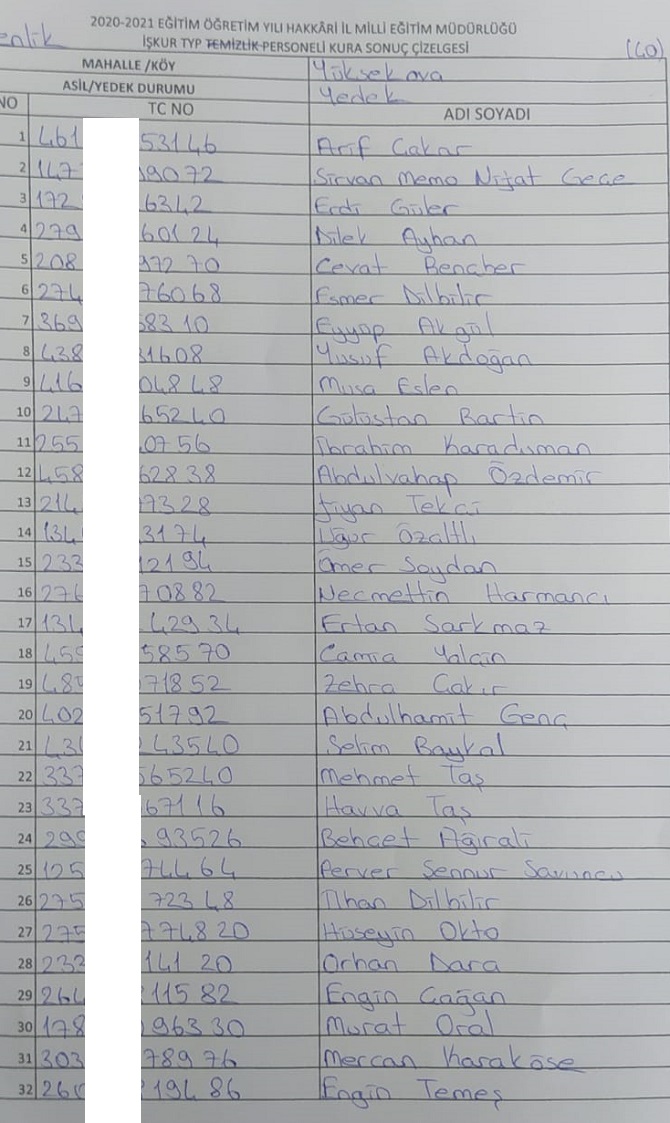 2020-2021 EĞİTİM ÖĞRETİM YILI HAKKÂRİ İL MİLLİ EĞİTİM MÜDÜRLÜĞÜ
enlik İŞKUR TYP TEMİZLİK PERSONELİ KURA SONUÇ ÇİZELGESİ (40)
MAHALLE /KÖY Yüksekova
ASİL/YEDEK DURUMU Yedek
NO TC NO ADI SOYADI
1 461 53146 Arif Çakar
2 147 9072 Sirvan Memo Nifat Gege
3 172 6342 Erdi Güler
4 279 60124 Dilek Ayhan
5 208 97270 Cevat Benceber
6 274 76068 Esmer Dilbilir
7 369 58310 Eyyüp Akgül
8 438 31608 Yusuf Akdoğan
9 416 04848 Musa Eslen
10 247 65240 Gülüstan Bartin
11 255 0756 İbrahim Karaduman
12 458 62838 Abdulvahap Özdemir
13 214 97328 Jiyan Tekçi
14 134 3174 Uğur Özaltlı
15 233 12194 Ömer Soydan
16 276 70882 Necmettin Harmancı
17 131 42934 Ertan Sarkmaz
18 459 58570 Camia Yalçin
19 484 71852 Zehra Çakır
20 402 51792 Abdulhamit Genç
21 43 43540 Selim Baykal
22 337 565240 Mehmet Taş
23 337 67116 Havva Taş
24 299 93526 Behcet Ağirali
25 125 74464 Perver Sennur Savuncu
26 275 72348 İlhan Dilbilir
27 275 774820 Hüseyin Okto
28 233 14120 Orhan Dara
29 264 11582 Engin Çağan
30 178 96330 Murat Oral
31 303 78976 Mercan Karaköse
32 260 19486 Engin Temeş